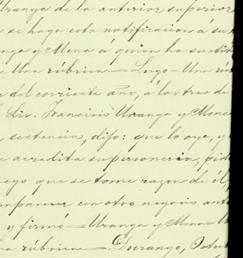 Uranga de la anterior superior
se haga esta notificacion á su
anga y Mena á quien ha sustit
Una rúbrica — Lugo — Una rú
del corriente año, á las tres de
Lic. Francisco Uranga y Mena
sentencia, dijo: que lo oye, y
acredita su personeria, pid
luego que se tome razon de él,
compareceu con otro negocio ante
y firmó — Uranga y Mena U
na rúbrica — Durango, Octub